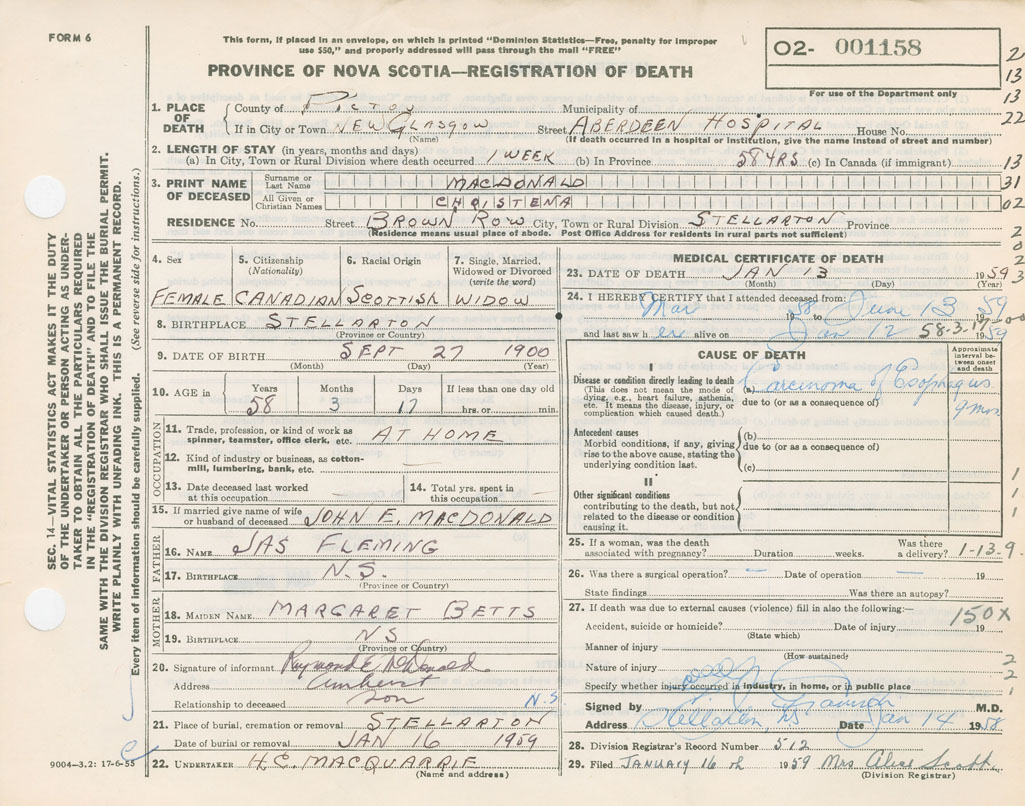 FORM 6
This form, if placed in an envelope, on which is printed "Dominion Statistics—Free, penalty for improper
use $50," and properly addressed will pass through the mail "FREE"
PROVINCE OF NOVA SCOTIA—REGISTRATION OF DEATH
O2- 001158
For use of the Department only
1. PLACE OF DEATH
County of PICTOU Municipality of
If in City or Town NEW GLASGOW Street ABERDEEN HOSPITAL House No.
(Name) (If death occurred in a hospital or institution, give the name instead of street and number)
2. LENGTH OF STAY (in years, months and days)
(a) In City, Town or Rural Division where death occurred 1 WEEK (b) In Province 58 YRS (c) In Canada (if immigrant)
3. PRINT NAME OF DECEASED
Surname or Last Name MACDONALD
All Given or Christian Names CHRISTENA
RESIDENCE No. Street BROWN ROW City, Town or Rural Division STELLARTON Province
(Residence means usual place of abode. Post Office Address for residents in rural parts not sufficient)
2
13
13
22
13
31
02
2
0
2
3
4. Sex 5. Citizenship (Nationality) 6. Racial Origin 7. Single, Married, Widowed or Divorced (write the word)
FEMALE CANADIAN SCOTTISH WIDOW
8. BIRTHPLACE STELLARTON
(Province or Country)
9. DATE OF BIRTH SEPT 27 1900
(Month) (Day) (Year)
10. AGE in Years Months Days If less than one day old
58 3 17 hrs. or min.
OCCUPATION
11. Trade, profession, or kind of work as spinner, teamster, office clerk, etc. AT HOME
12. Kind of industry or business, as cotton-mill, lumbering, bank, etc. —
13. Date deceased last worked at this occupation 14. Total yrs. spent in this occupation
15. If married give name of wife or husband of deceased JOHN E. MACDONALD
FATHER
16. NAME JAS FLEMING
17. BIRTHPLACE N.S.
(Province or Country)
MOTHER
18. MAIDEN NAME MARGARET BETTS
19. BIRTHPLACE NS
(Province or Country)
20. Signature of informant Raymond E McDonald
Address Amherst
Relationship to deceased son N.S.
21. Place of burial, cremation or removal STELLARTON
Date of burial or removal JAN 16 1959
22. UNDERTAKER H.C. MACQUARRIE
(Name and address)
MEDICAL CERTIFICATE OF DEATH
23. DATE OF DEATH JAN 13 1959
(Month) (Day) (Year)
24. I HEREBY CERTIFY that I attended deceased from:
Mar 1958 to June 13 1959
and last saw h er alive on Jan 12 1959
58-3-17
CAUSE OF DEATH
Approximate interval between onset and death
I
Disease or condition directly leading to death
(This does not mean the mode of dying, e.g., heart failure, asthenia, etc. It means the disease, injury, or complication which caused death.)
(a) Carcinoma of Esophagus
due to (or as a consequence of) 9 mos
Antecedent causes
Morbid conditions, if any, giving rise to the above cause, stating the underlying condition last.
(b)
due to (or as a consequence of)
(c)
II
Other significant conditions
contributing to the death, but not related to the disease or condition causing it.
1
1
1
25. If a woman, was the death associated with pregnancy? Duration weeks. Was there a delivery? 1-13-9
26. Was there a surgical operation? — Date of operation — 19
State findings Was there an autopsy?
27. If death was due to external causes (violence) fill in also the following:—
150X
Accident, suicide or homicide? Date of injury 19
(State which)
Manner of injury
(How sustained)
Nature of injury
Specify whether injury occurred in industry, in home, or in public place
2
2
1
Signed by M.D.
Address Stellarton, NS Date Jan 14 1958
28. Division Registrar's Record Number 512
29. Filed JANUARY 16th 1959 Mrs Alice Scott
(Division Registrar)
SEC. 14—VITAL STATISTICS ACT MAKES IT THE DUTY
OF THE UNDERTAKER OR PERSON ACTING AS UNDER-
TAKER TO OBTAIN ALL THE PARTICULARS REQUIRED
IN THE "REGISTRATION OF DEATH" AND TO FILE THE
SAME WITH THE DIVISION REGISTRAR WHO SHALL ISSUE THE BURIAL PERMIT.
WRITE PLAINLY WITH UNFADING INK. THIS IS A PERMANENT RECORD.
Every item of information should be carefully supplied. (See reverse side for instructions.)
9004—3.2: 17-6-55